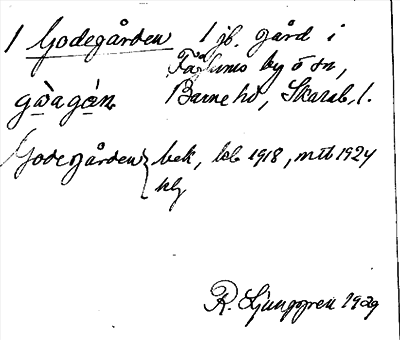 1 Godegården 1 jb. gård i
Fåglums by o sn,
gωagán Barne hd, Skarab. l.
Godegården } bek, leb 1918, mtl 1924
hly
R. Ljunggren 1929